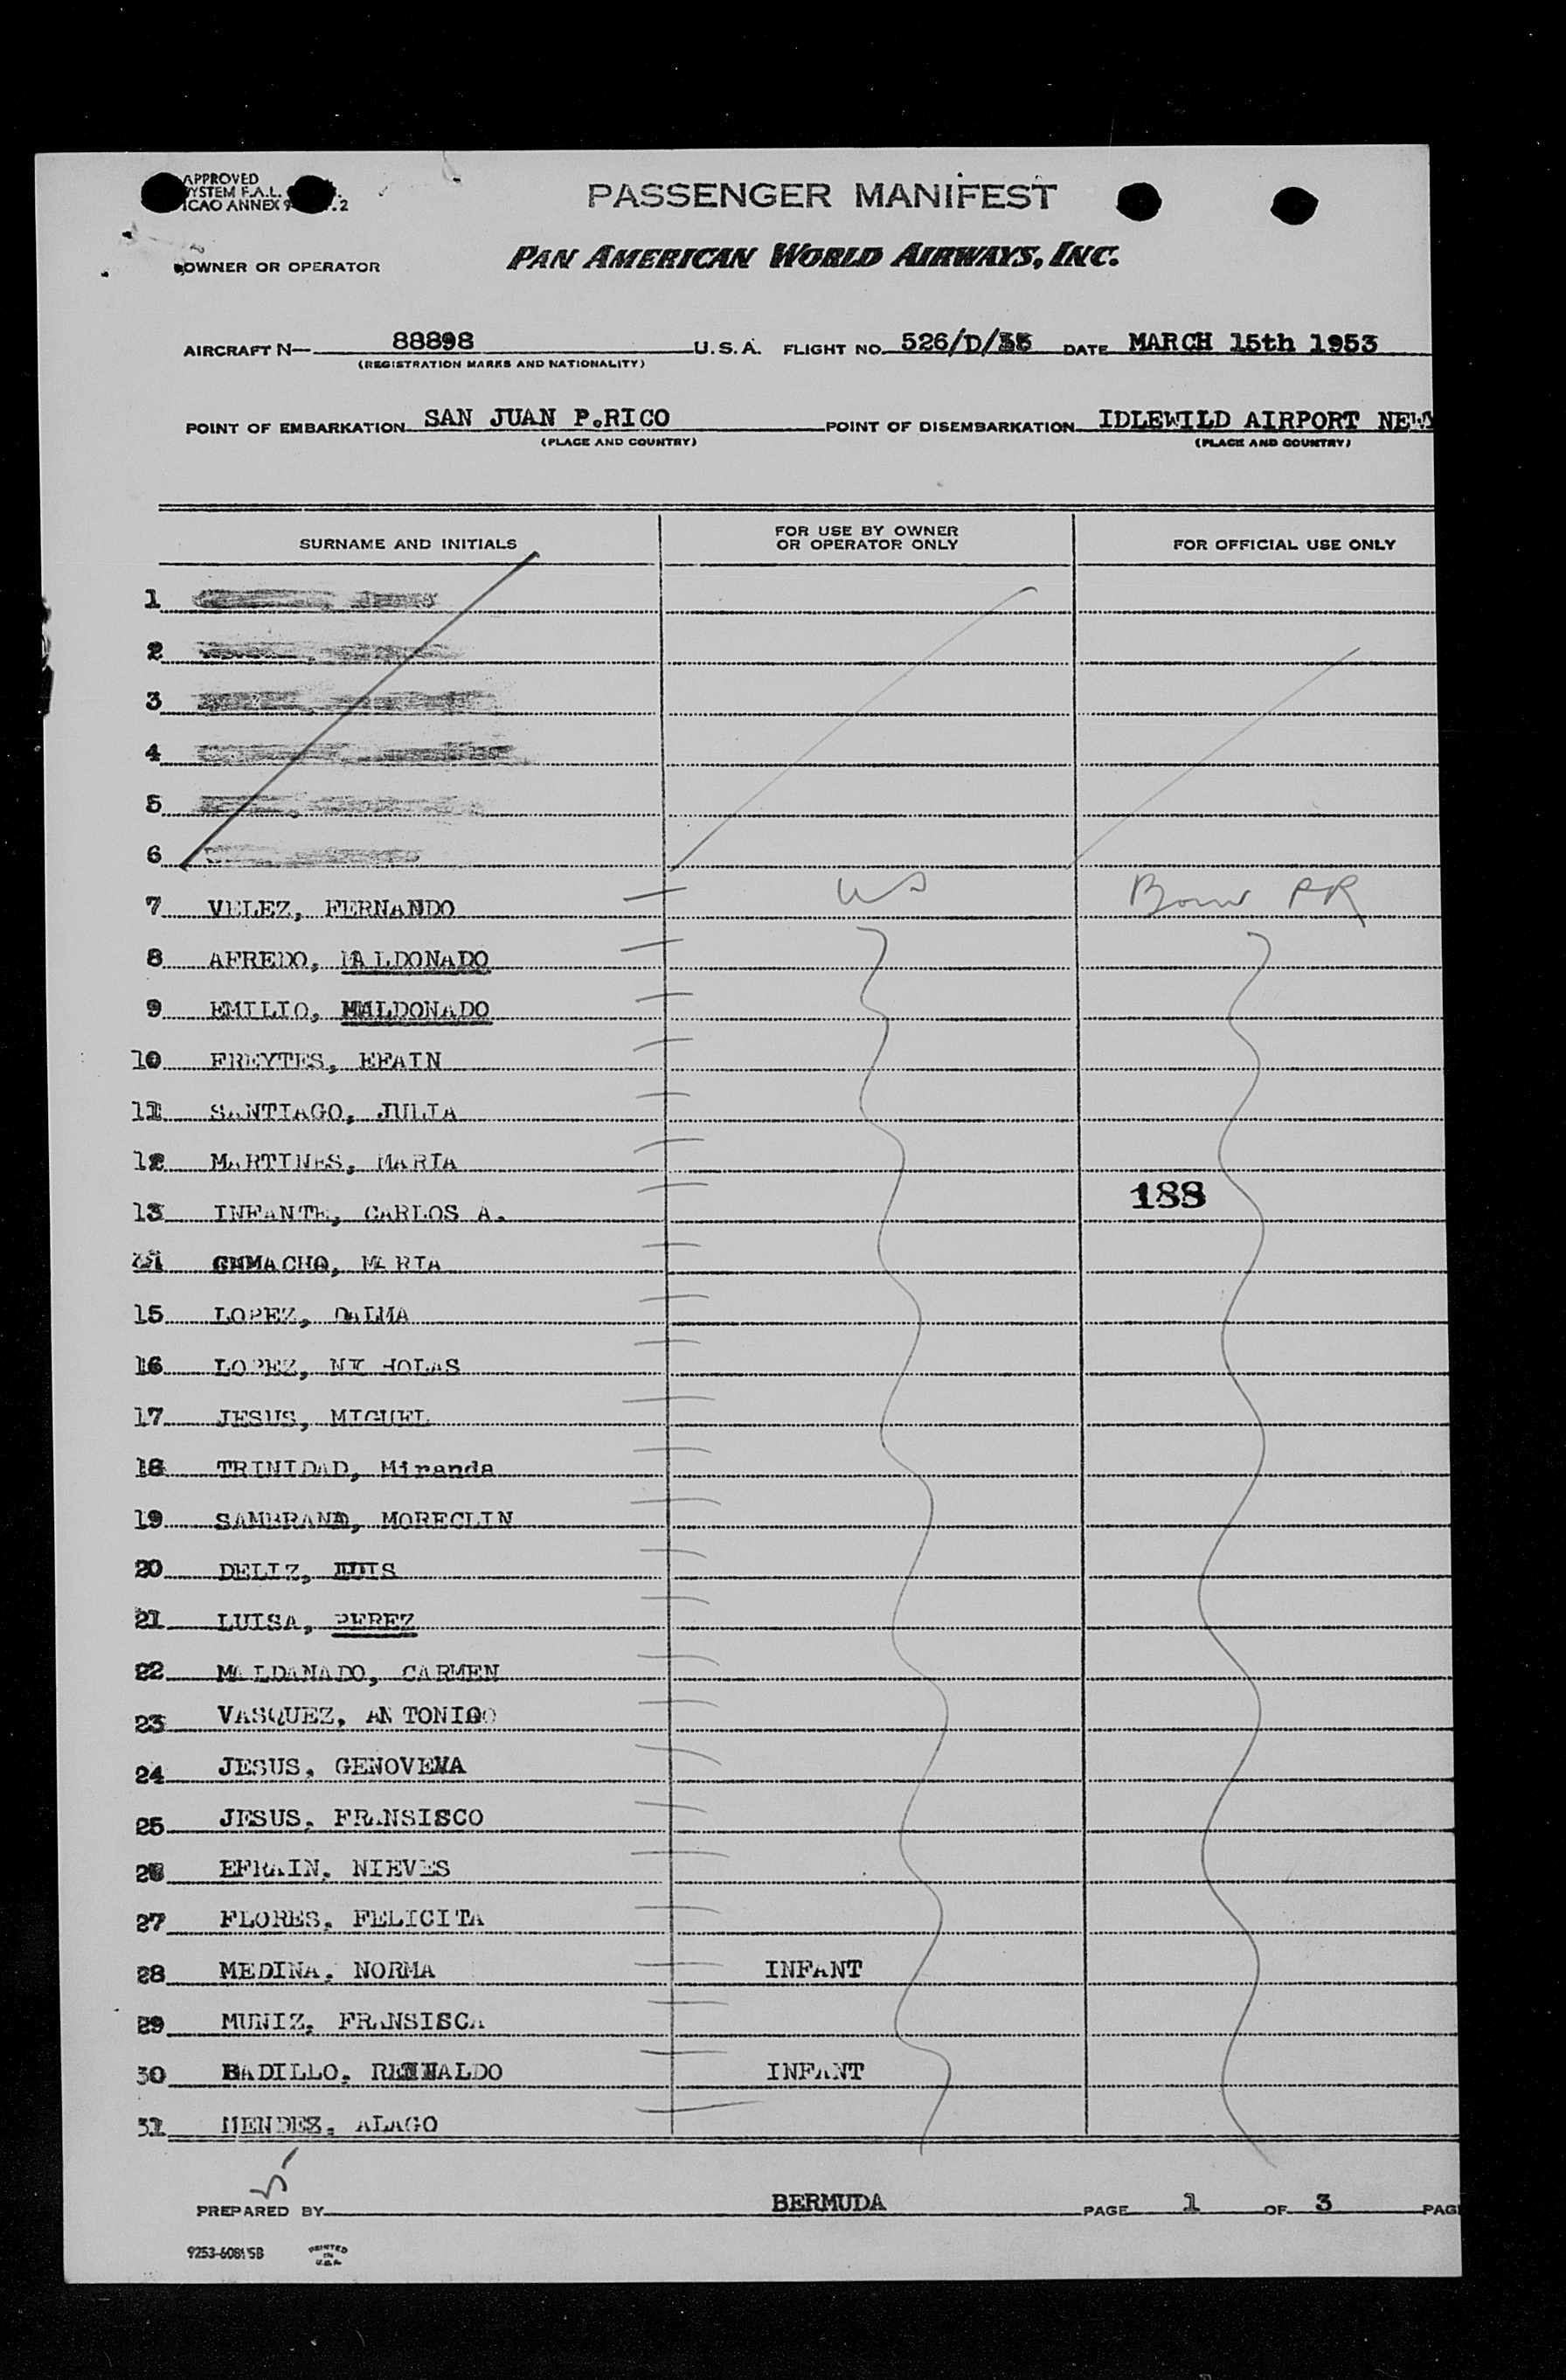 APPROVED
SYSTEM F.A.L.
ICAO ANNEX 9 .2
PASSENGER MANIFEST
OWNER OR OPERATOR PAN AMERICAN WORLD AIRWAYS, INC.
AIRCRAFT N— 88898 U.S.A. FLIGHT NO. 526/D/ DATE MARCH 15th 1953
(REGISTRATION MARKS AND NATIONALITY)
POINT OF EMBARKATION SAN JUAN P.RICO POINT OF DISEMBARKATION IDLEWILD AIRPORT NEWY
(PLACE AND COUNTRY) (PLACE AND COUNTRY)
SURNAME AND INITIALS FOR USE BY OWNER OR OPERATOR ONLY FOR OFFICIAL USE ONLY
1
2
3
4
5
6
7 VELEZ, FERNANDO US Born PR
8 AFREDO, MALDONADO
9 EMILIO, MALDONADO
10 FREYTES, EFAIN
11 SANTIAGO, JULIA
12 MARTINES, MARIA
13 INFANTE, CARLOS A. 188
CAMACHO, MARIA
15 LOPEZ, DALMA
16 LOPEZ, NICHOLAS
17 JESUS, MIGUEL
18 TRINIDAD, Miranda
19 SAMBRANO, MORECLIN
20 DELIZ, LUIS
21 LUISA, PEREZ
22 MALDANADO, CARMEN
23 VASQUEZ, ANTONIO
24 JESUS, GENOVEVA
25 JESUS, FRANSISCO
26 EFRAIN, NIEVES
27 FLORES, FELICITA
28 MEDINA, NORMA INFANT
29 MUNIZ, FRANSISCA
30 BADILLO, REINALDO INFANT
31 MENDEZ, ALAGO
PREPARED BY BERMUDA PAGE 1 OF 3 PAG
PRINTED
IN
U.S.A.